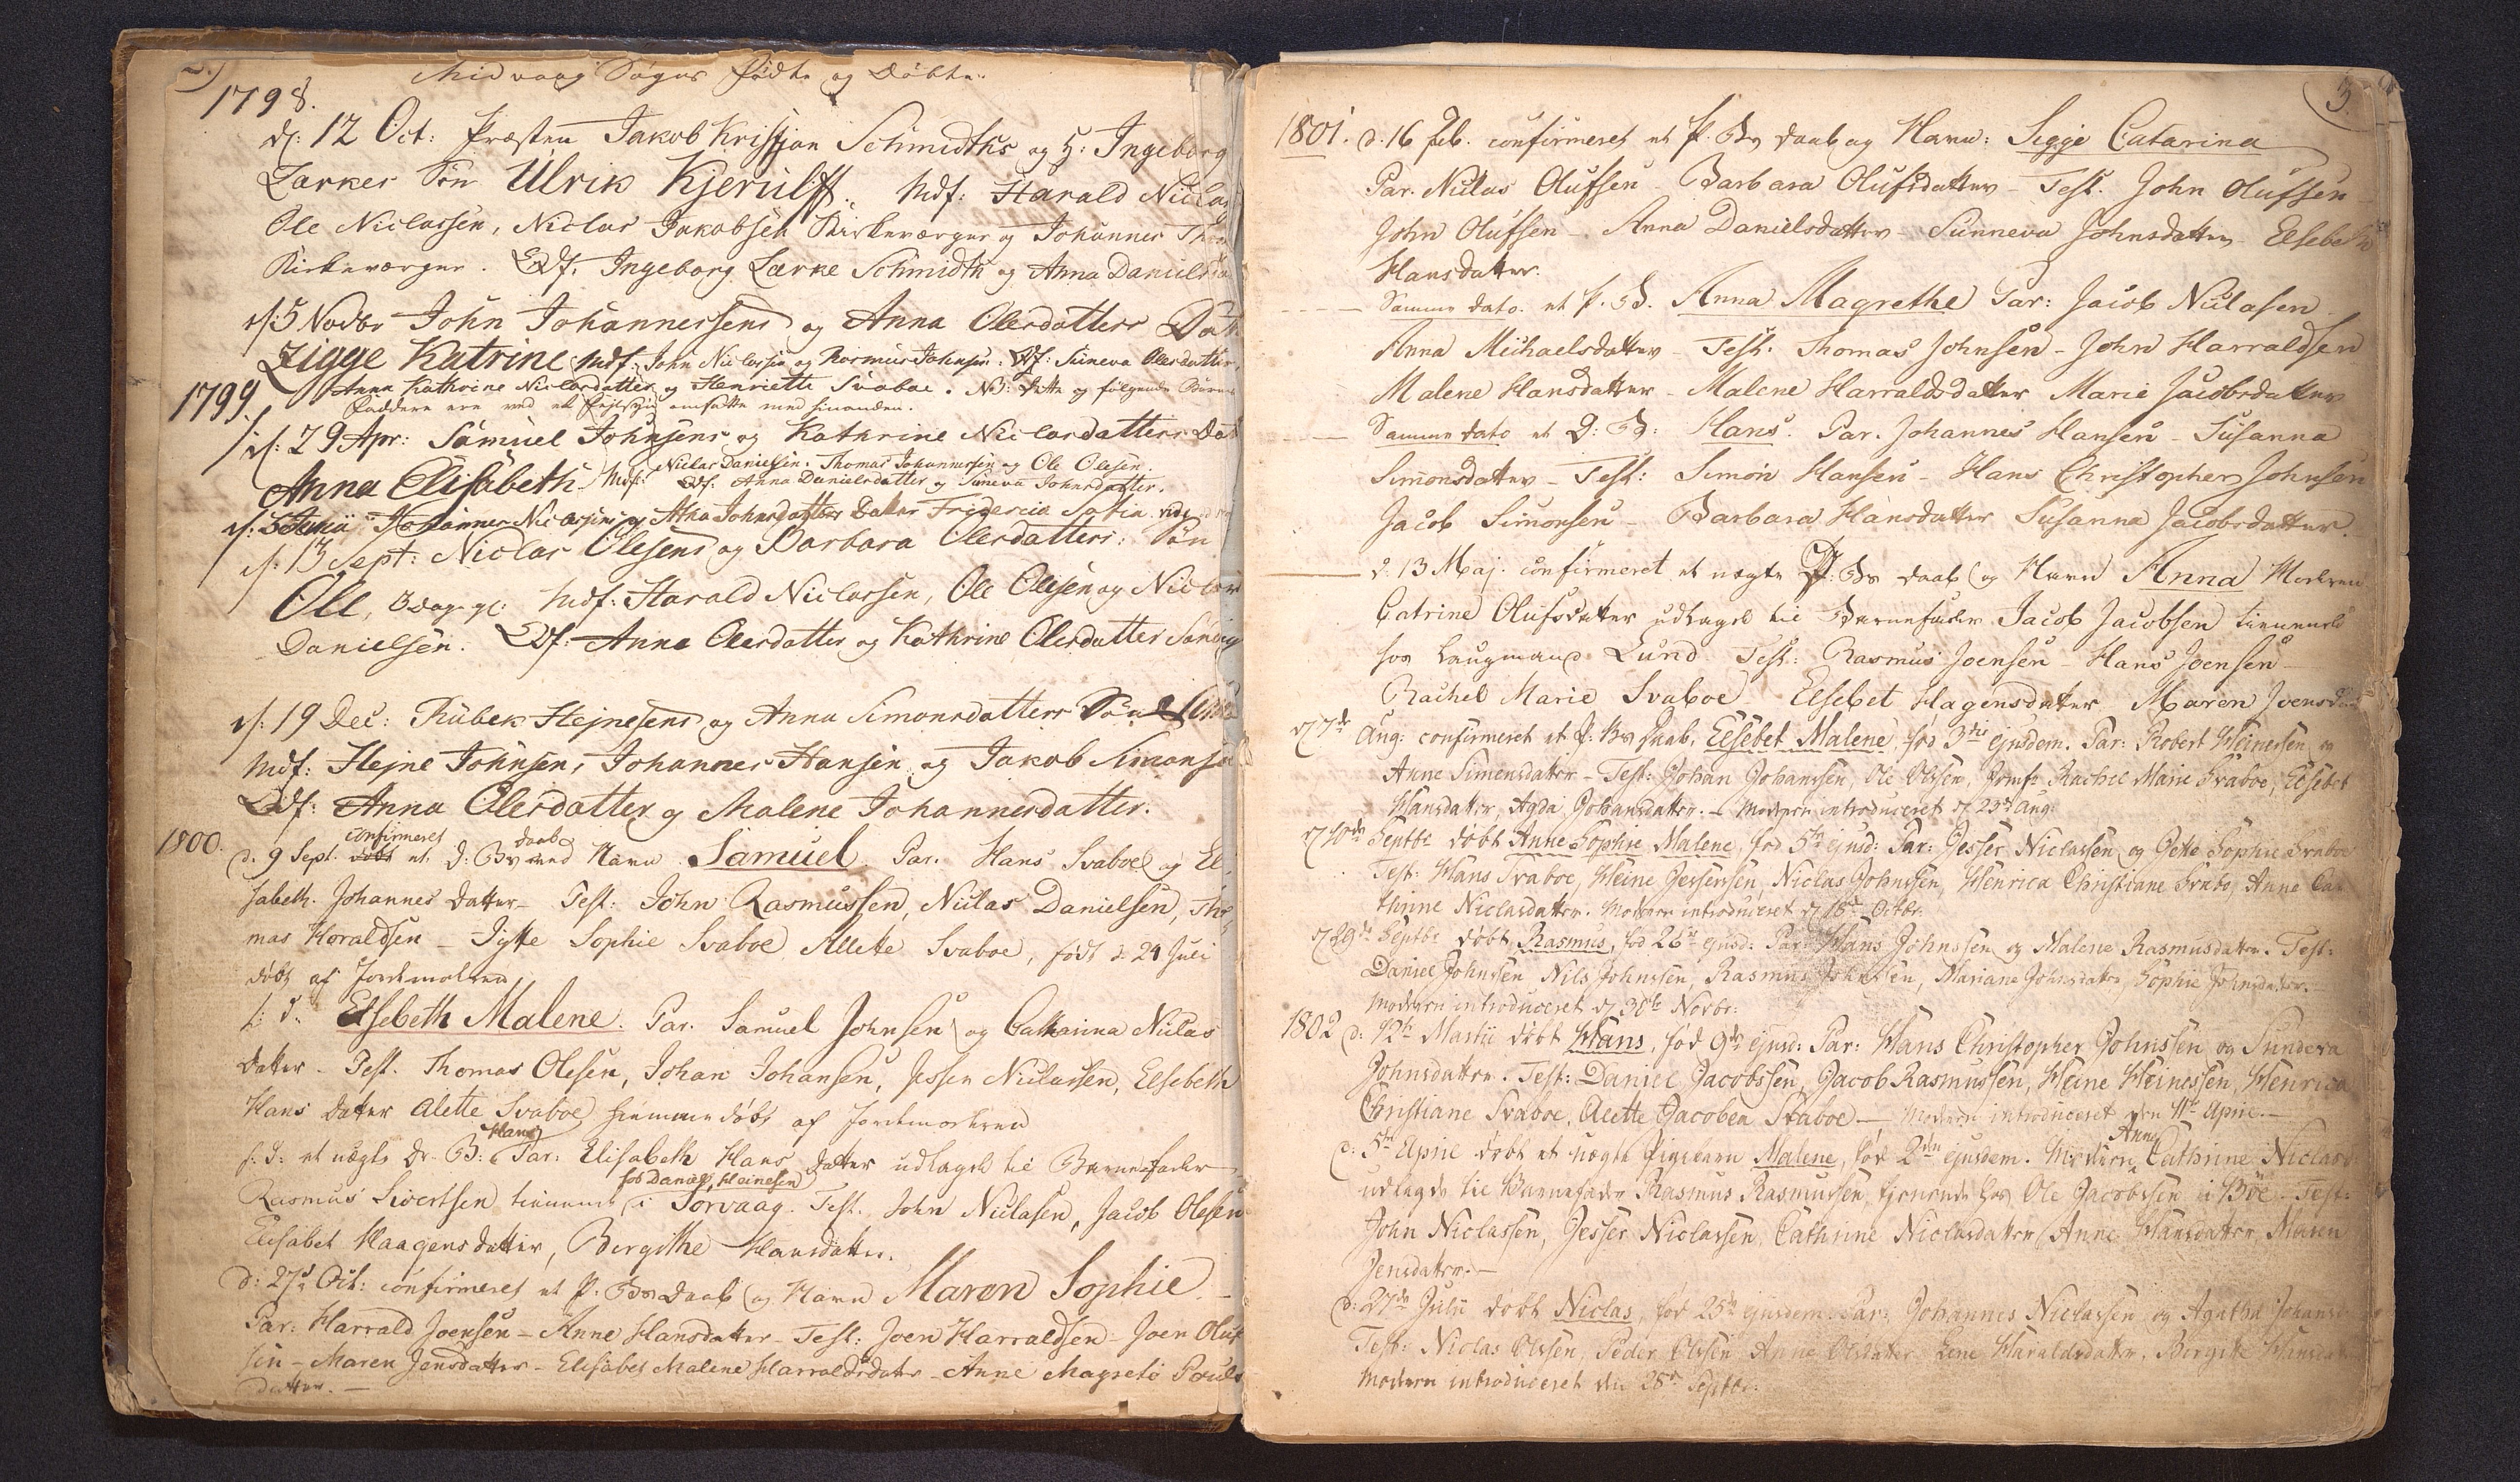 2.)
Midvaag Sogns Fødte og Døbte.
1798.
d: 12 Oct: Præsten Jakob Kristjan Schmidths og H: Ingeborg
Larkes Søn Ulrik Kjerulff. Mdf: Harald Nicla
Ole Niclassen, Niclas Jakobsen Kirkeværger og Johannes
Kirkeværger. Qdf. Ingeborg Larke Schmidth og Anna Daniels
d: 5 Novbr John Johannessens og Anna Olesdatters
Zigge Katrine Mdf: John Niclassen og Rasmus Johnsen. Qdf: Suneva Olesdatter,
Anna Kathrine Niclasdatter og Henriette Svaboe. NB: Dette og følgende Barns
Faddere ere ved et Fejlsyn omsatte med hinanden.
1799.
d: 29 Apr: Samuel Johnsens og Kathrine Niclasdatters
Anna Elisabeth Mdf: Niclas Danielsen. Thomas Johannessen og Ole Olesen.
Qdf. Anna Danielsdatter og Suneva Johnsdatter.
d: Junii Johannes Niclassens og Atha Johnsdatters Datter Fridericia Sofia
d: 13 Sept: Niclas Olesens og Barbara Olesdatters: Søn
Ole, Mdf: Harald Niclassen, Ole Olesen og Niclas
Danielsen. Qdf: Anna Olesdatter og Kathrine Olesdatter
d: 19 Dec: Rubek Hejnesens og Anna Simonsdatters Søn
Mdf: Hejne Johnsen, Johannes Hansen og Jakob Simonse
Qdf: Anna Olesdatter og Malene Johannesdatter.
1800.
confirmeret daab
d. 9 Sept. døbt et D: Bs med Navn Samuel. Par. Hans Svaboe og El-
sabeth Johannes Datter - Test: John Rasmussen, Niclas Danielsen, Tho
mas Horaldsen - Jytte Sophie Svaboe Allette Svaboe, født d: 24 Juli
døbt af Jordemoderen
s: d: Elsebeth Malene. Par. Samuel Johnsen og Catharina Niclas
Datter - Test. Thomas Olesen, Johan Johansen, Jesper Niclassen, Elsebeth
Hans Datter Alette Svaboe hiemmedøbt af Jordemoderen
Hans
s: d: et uægte Dr. B: Par: Elisabeth Hans Datter udlagde til Barnefader
hos Daniel Heinesen
Rasmus Sivertsen tienende i Sorvaag. Test. John Niclasen, Jacob Olesen
Elisabet Haagensdatter, Birgithe Hansdatter.
d: 27d Oct: confirmeret et P. Bs Daab og Navn Maren Sophie
Par: Harrald Joensen - Anne Hansdatter - Test: Joen Harraldsen - Joen Oluf
sen - Maren Jensdatter - Elisabet Malene Harraldsdatr - Anne Magrete Pouls
datter. -
3.
1801. d: 16 feb. confirmeret et P. Bs daab og Navn: Sigge Catarina
Par. Niclas Olufsen - Barbara Olufsdatter - Test. John Olufsen
John Olufsen - Anna Danielsdatter - Sunneva Johnsdatter - Elsebeth
Hansdatter.
Samme dato. et P. B. Anna Magrethe Par: Jacob Niclasen
Anna Michaelsdatter - Test. Thomas Johnsen - John Harraldsen
Malene Hansdatter - Malene Harraldsdatter Marie Jacobsdatter
Samme dato et D: B: Hans. Par. Johannes Hansen - Susanna
Simonsdatter - Test: Simon Hansen - Hans Christopher Johnsen
Jacob Simonsen - Barbara Hansdatter Susanna Jacobsdatter.
d. 13 Maj. confirmeret et uægte P: Bs daab og Navn Anna Moderen
Catrine Olufsdatter udlagde til Barnefader Jacob Jacobsen tienende
hos Laugmand Lund Test: Rasmus Joensen - Hans Joensen
Rachel Marie Svaboe Elsebet Hagensdatter Maren Joens
d 7de Aug: confirmeret et P: Bs daab, Elsebet Malene, fød 3die ejusdem. Par: Robert Heinessen og
Anne Simensdatter - Test: Johan Johanssen, Ole Olsen, Jomfr Rachel Marie Svaboe, Elsebet
Hansdatter, Agda Johansdatter. - Moderen introduceret d 23de Aug.
d 10de Septbr døbt Anne Sophie Malene, fød 5te ejusd: Par: Jesper Niclassen og Jette Sophie Svaboe
Test: Hans Svaboe, Heine Jespersen, Niclas Johnssen, Henrica Christiane Svabo, Anne Ca
thrine Niclasdatter. Moderen introduceret d 18de Octbr.
d 29de Septbr døbt, Rasmus, fød 26de ejusd: Par: Hans Johnssen og Malene Rasmusdatter. Test:
Daniel Johnssen Nils Johnssen, Rasmus Johnssen, Mariane Johnsdatter, Sophie Johnsdatter.
Moderen introduceret d 30te Novbr:
1802 d: 12te Martii døbt Hans, fød 9de ejusd: Par: Hans Christopher Johnssen og Sundeva
Johnsdatter. Test: Daniel Jacobssen, Jacob Rasmussen, Heine Heinessen, Henrica
Christiane Svaboe, Alette Jacobea Svaboe - Moderen introduceret den 11te April. -
Anne
d: 5te April døbt et uægte Pigebarn Malene, fød 2den ejusdem. Moderen Cathrine Niclasd
udlagde til Barnefader Rasmus Rasmussen, tjenende hos Ole Jacobssen i Böe - Test:
John Niclassen, Jesper Niclassen, Cathrine Niclasdatter, Anne Hansdatter, Maren
Jensdatter. -
d: 27de Julii døbt Niclas, fød 25de ejusdem. Par: Johannes Niclassen og Agatha Johans
Test: Niclas Olssen, Peder Olssen Anne Olsdatter Lene Haraldsdatter, Birgitte Hansdat
Moderen introduceret den 28de Septbr.